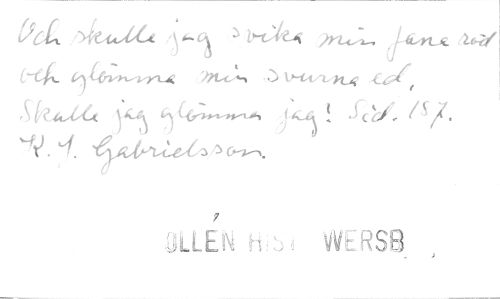 Och skulle jag svika min fana röd
och glömma min svurna ed,
Skulle jag glömma jag! Sid. 157.
K. J. Gabrielsson.
OLLÉN HIST WERSB